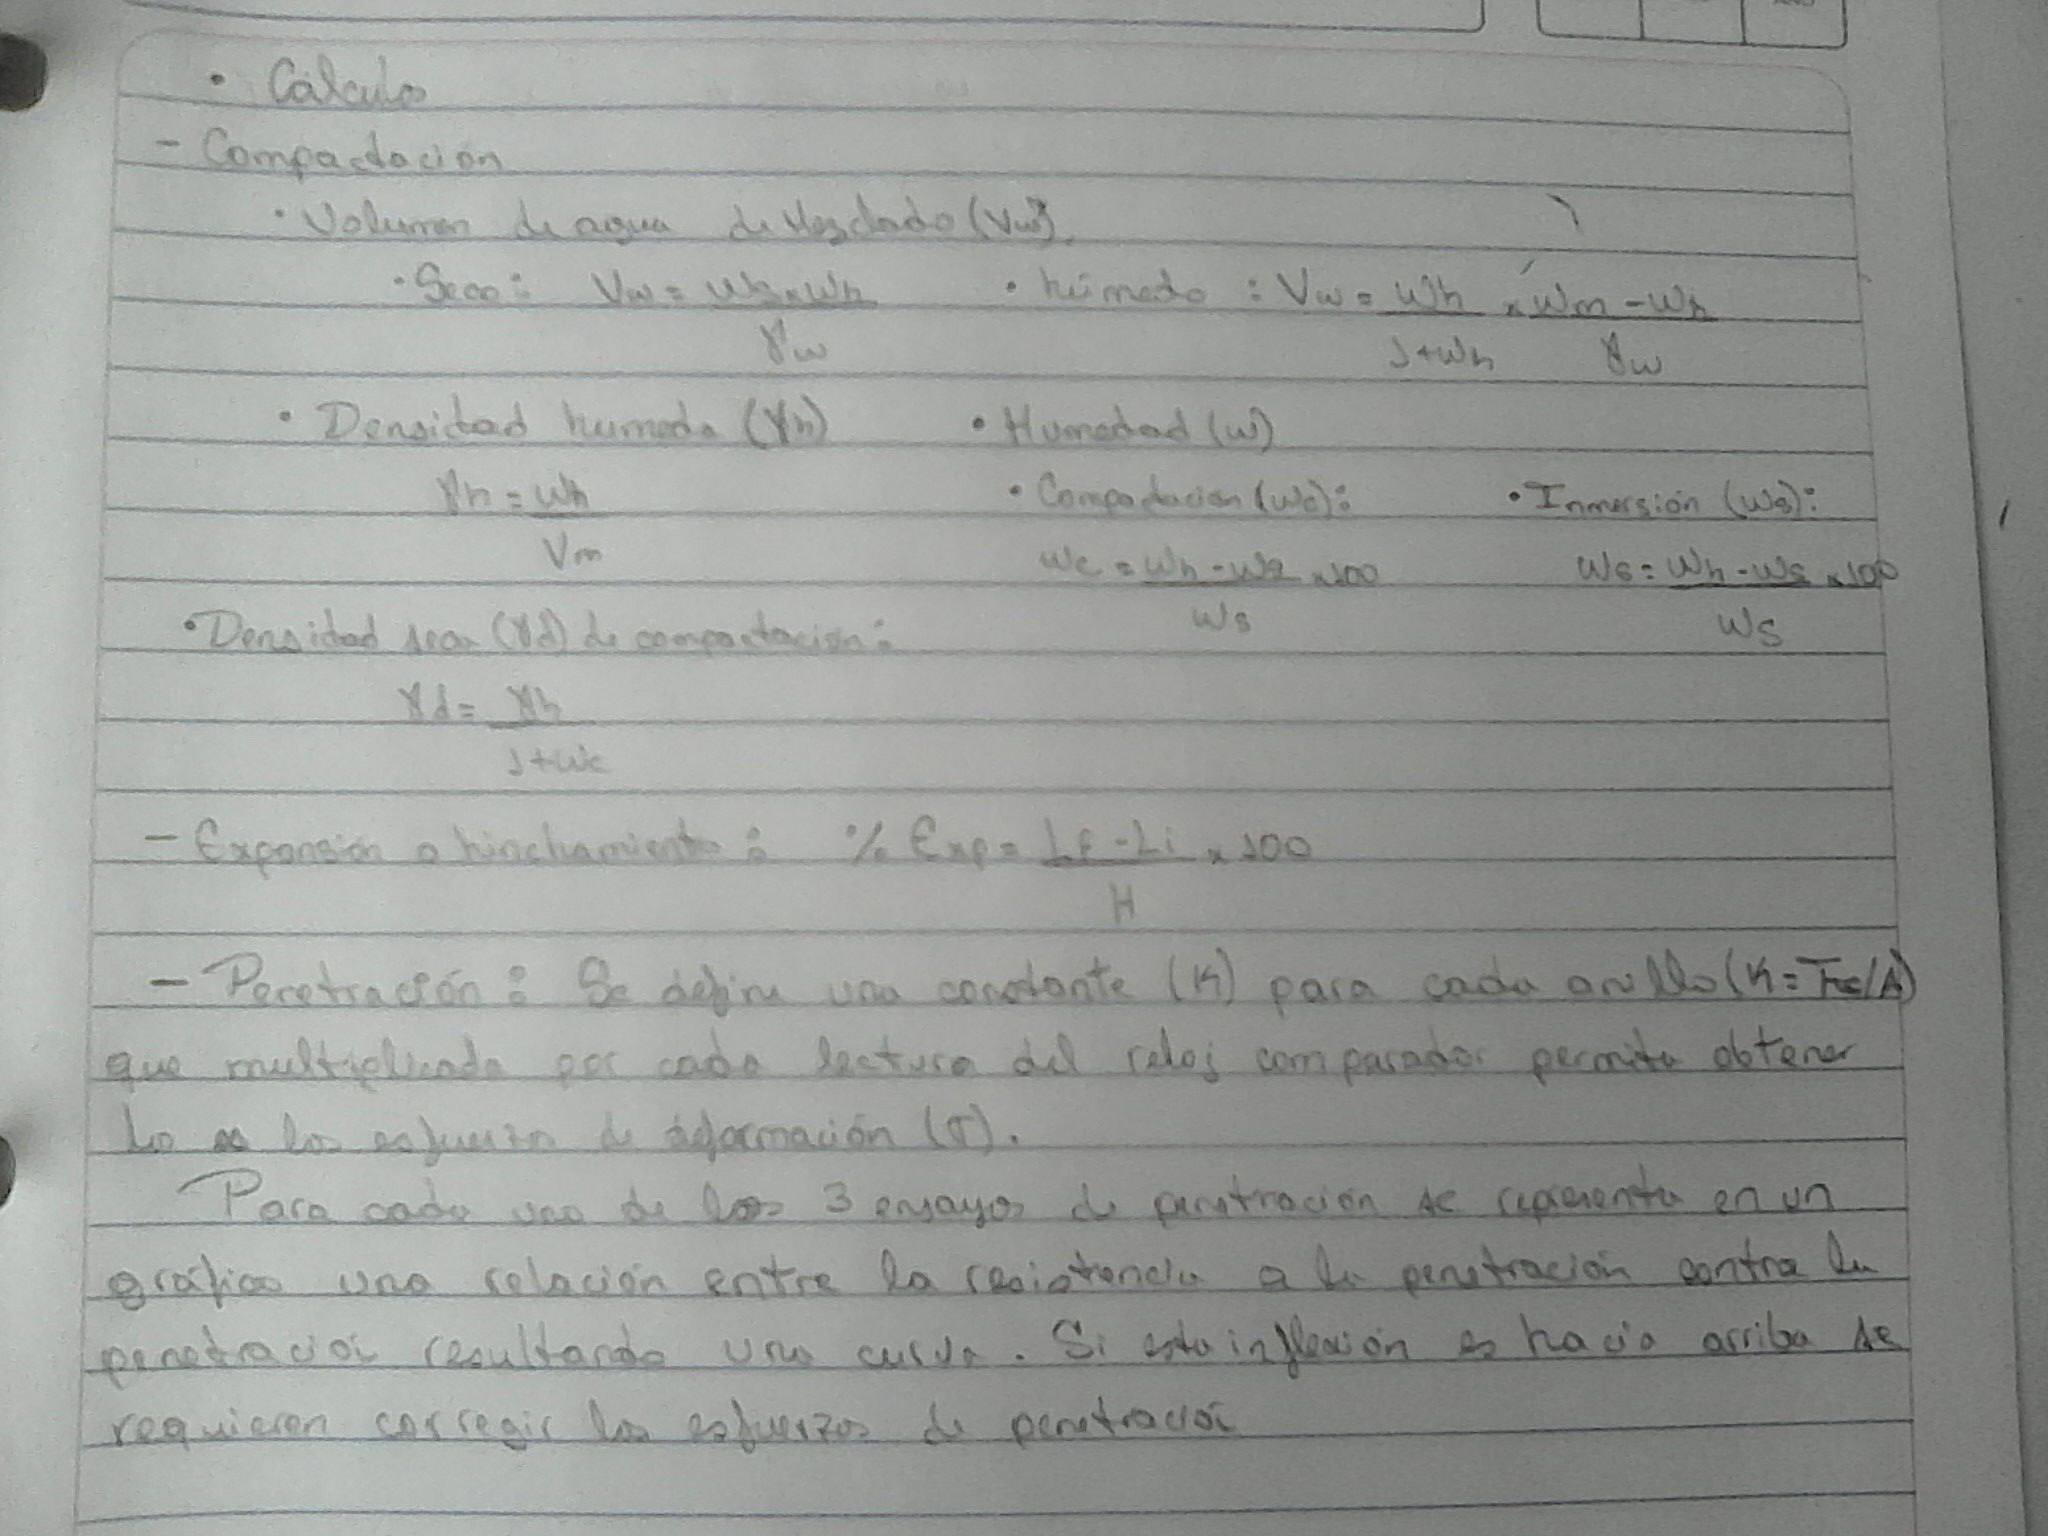 • Cálculo
- Compactación
• Volumen de agua de Mezclado (Vw).
• Seco: Vw = Wh x Wh / γw • húmedo : Vw = Wh / 1+Wh x Wm - Wh / γw
• Densidad humeda (γh) • Humedad (w)
γh = Wh / Vm • Compactacion (Wc): • Inmersión (Ws):
Wc = Wh - Ws / Ws x100 Ws = Wh - Ws / Ws x100
• Densidad seca (γd) de compactacion:
γd = γh / 1+Wc
- Expansión o hinchamiento : % Exp = Lf - Li / H x 100
- Penetración : Se define una constante (K) para cada anillo (K = Fc/A)
que multiplicada por cada lectura del reloj comparador permita obtener
los esfuerzo de deformación (σ).
Para cada uno de los 3 ensayos de penetración se representa en un
gráfico una relación entre la resistencia a la penetración contra la
penetracioi resultando una curva. Si esta inflexión es hacia arriba se
requieren corregir los esfuerzos de penetracioi